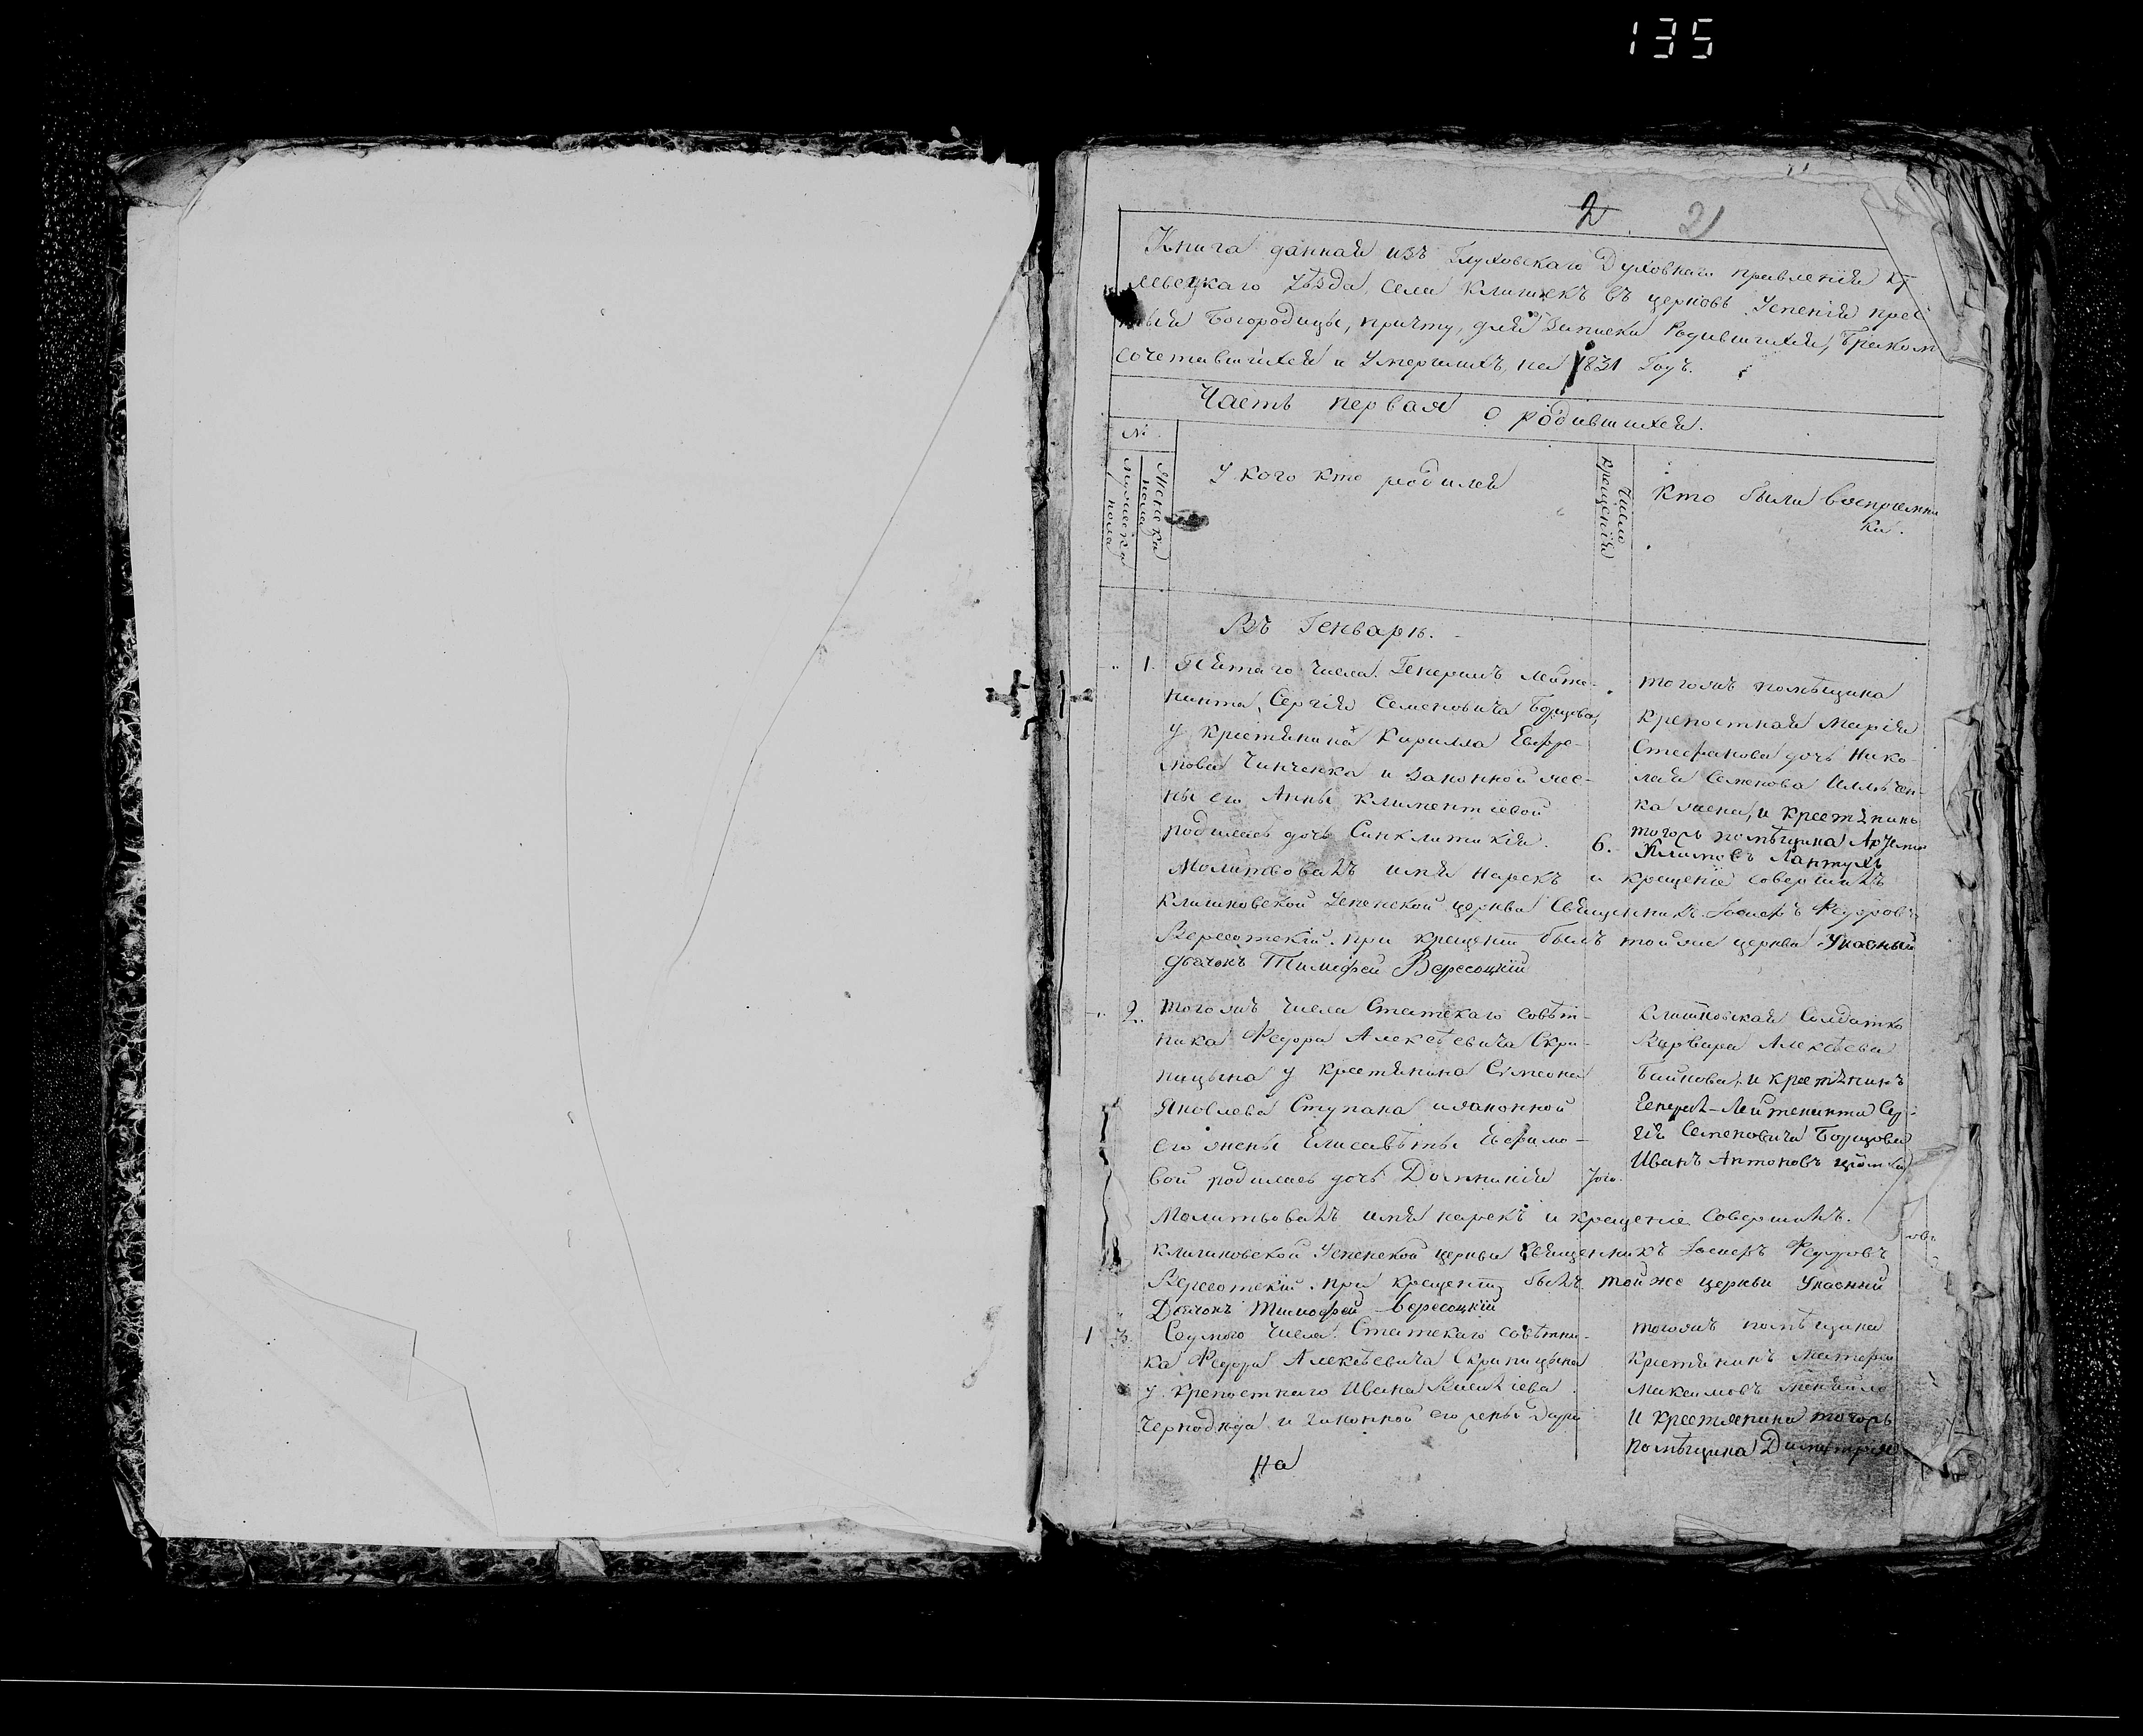 135
2. 2
Книга данная изъ Глуховскаго Духовнаго правления
левецкаго уѣзда, села Клишекъ въ церковь Успения прес
Богородицы, причту, для записки Родившихся, Бракомъ
сочетавшихся и умершихъ, на 1831 Годъ.
Часть первая о родившихся.
№
мужеска пола
женска пола
У кого кто родился
Число крещения
Кто были восприемни
ки.
Въ Генварѣ.
1. Пятаго числа. Генералъ Лейте-
нанта Сергия Семеновича Борщова,
у крестянина Кирилла Ефре-
мова Чинченка и законной же-
ны его Анны Климентиевой
родилась дочь Синклитикия. 6.
тогожъ помѣщика
крепостная Мария
Стефанова дочь Нико-
лая Семенова
ка жена, и крестянинъ
тогожъ помѣщика
Климовъ Лантухъ
Молитвовалъ имя нарекъ и крещение совершилъ
Клишковской Успенской церкви Священникъ Иосифъ Федоровъ
Вересотский. при крещении былъ тойже церкви Указный
Дьячокъ Тимофей Вересоцкий
2. тогожъ числа Статскаго совѣт-
ника Федора Алексѣевича Скри-
пицына у крестянина Симеона
Яковлева Ступака и законной
его жены Елисаветы Ефимо-
вой родилась дочь Домникия 7го.
Клишковская Солдатка
Варвара Алексѣева
Байкова, и крестянинъ
Генералъ-Лейтенанта Сер-
гия Семеновича Борщова
Иванъ Антоновъ
Молитвовалъ имя нарекъ и крещение Совершилъ.
Клишковской Успенской церкви Священникъ Иосифъ Федоровъ
Вересотский. при крещении былъ тойже церкви Указный
Дьячокъ Тимофей Вересоцкий
1 3. Седмого числа. Статскаго совѣтни-
ка Федора Алексѣевича Скрипицына
у крепостнаго Ивана Василиева
и законной его жены
тогожъ помѣщика
крестянинъ
Максимовъ
и крестянина тогожъ
помѣщика Димитрия
На